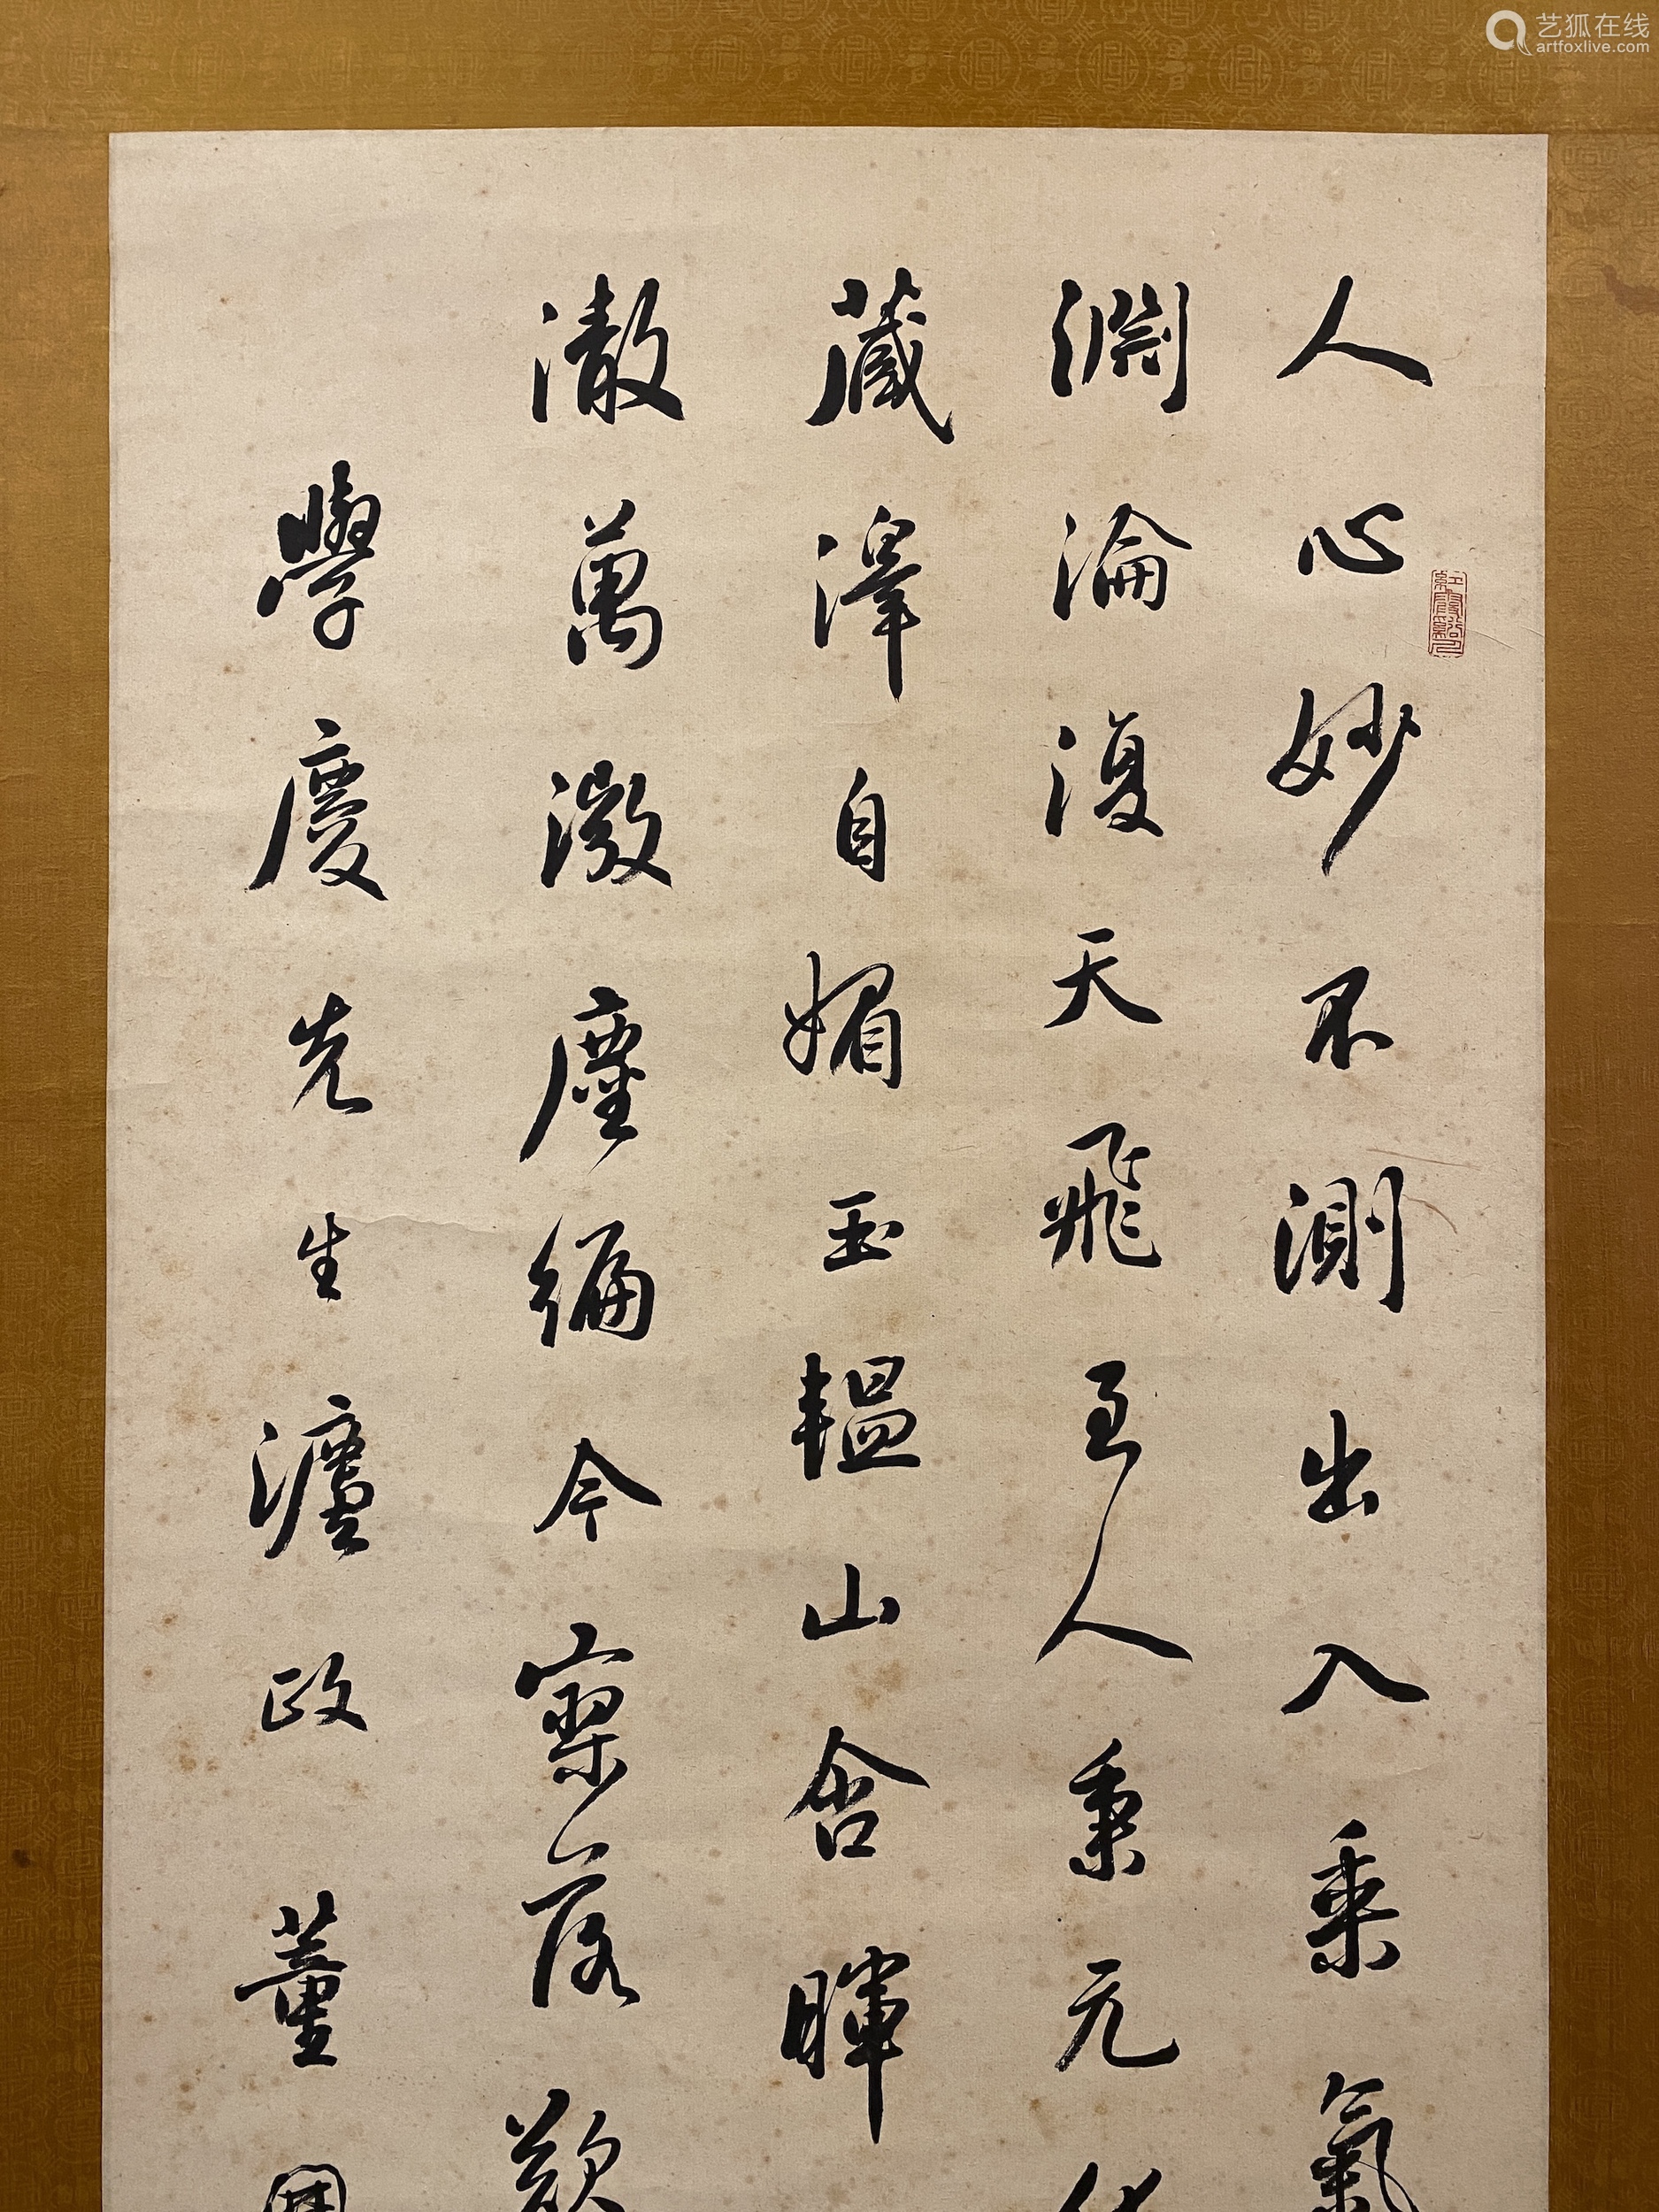 艺狐在线
artfoxlive.com
人心妙不測出入乘氣
淵淪復天飛至人秉元
藏澤自媚玉韞山含暉
徹萬微塵編今寥落歎
學慶先生灋政 董